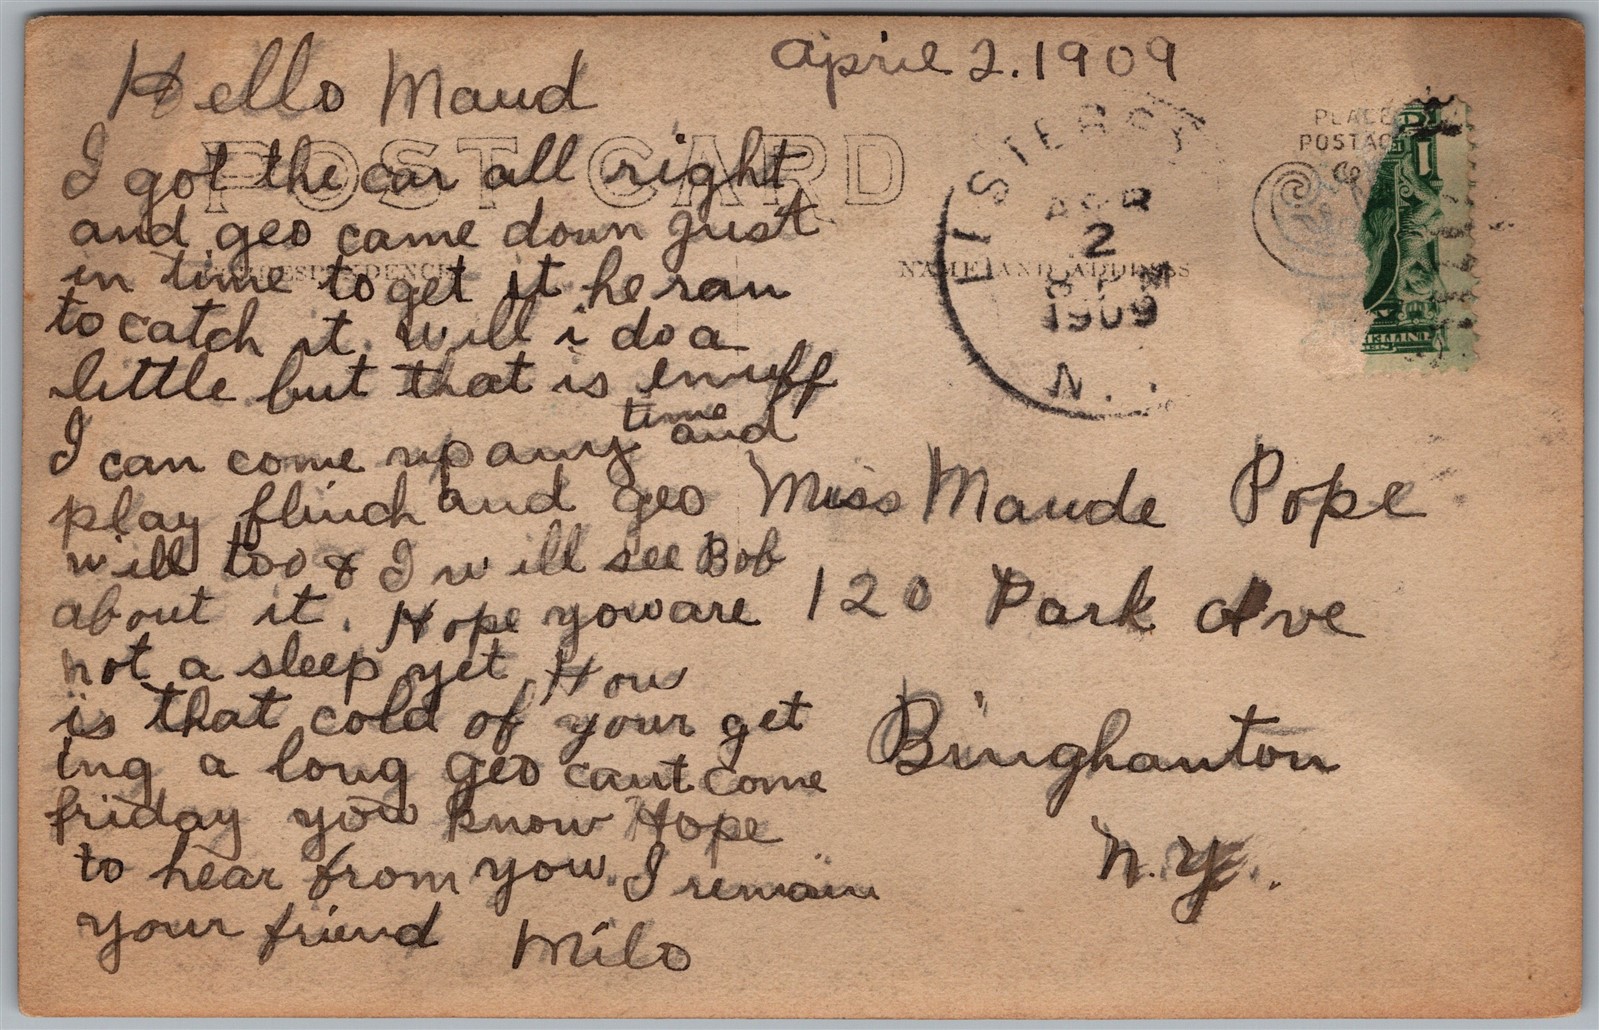 april 2. 1909
Hello Maud
POST CARD
I got the car all right
and geo came down just
in time to get it he ran
to catch it. will i do a
little but that is enuff
I can come up any time and
play flinch and geo
will too & I will see Bob
about it. Hope you are
not a sleep yet. How
is that cold of your get
ing a long geo cant come
friday you know Hope
to hear from you. I remain
your friend Milo
CORRESPONDENCE
NAME AND ADDRESS
PLACE
POSTAGE
APR
2
8 PM
1909
N.
1
Miss Maude Pope
120 Park Ave
Binghanton
N.Y.